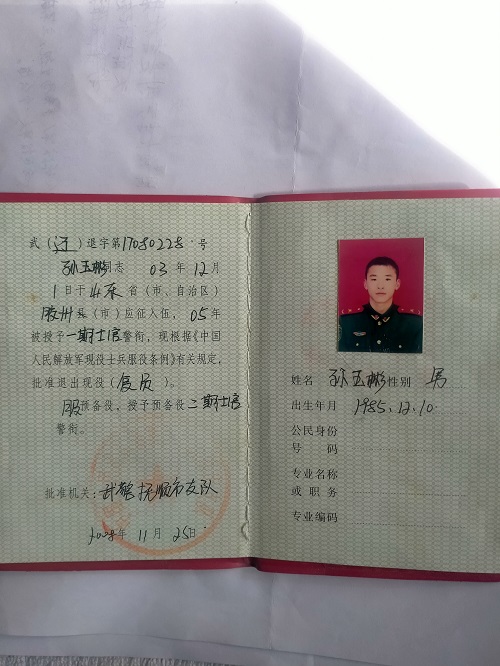 武（辽）退字第17080228号
孙玉彬同志 03 年 12 月
1 日于山东省（市、自治区）
胶州县（市）应征入伍，05 年
被授予一期士官警衔，现根据《中国
人民解放军现役士兵服役条例》有关规定，
批准退出现役（复员）。
服预备役，授予预备役二期士官
警衔。
批准机关：武警抚顺市支队
2008年 11 月 25日
姓名 孙玉彬 性别 男
出生年月 1985.12.10
公民身份
号 码
专业名称
或 职 务
专业编码